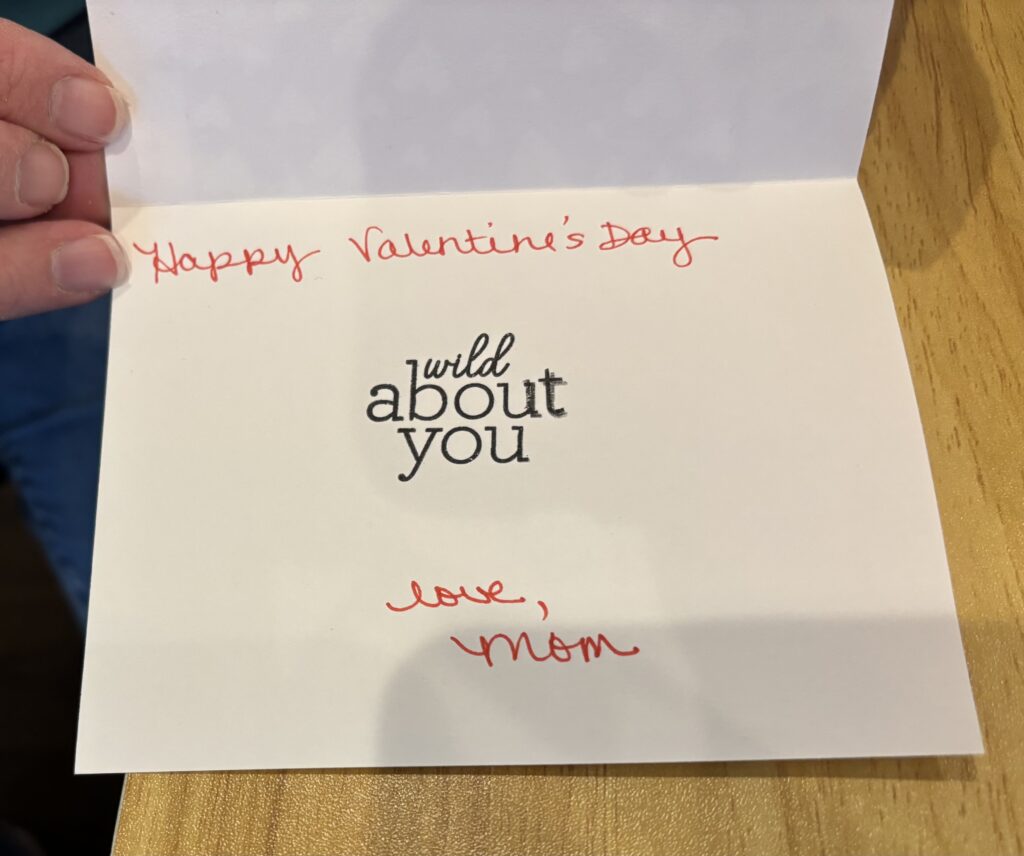 Happy Valentine's Day
wild
about
you
love,
Mom